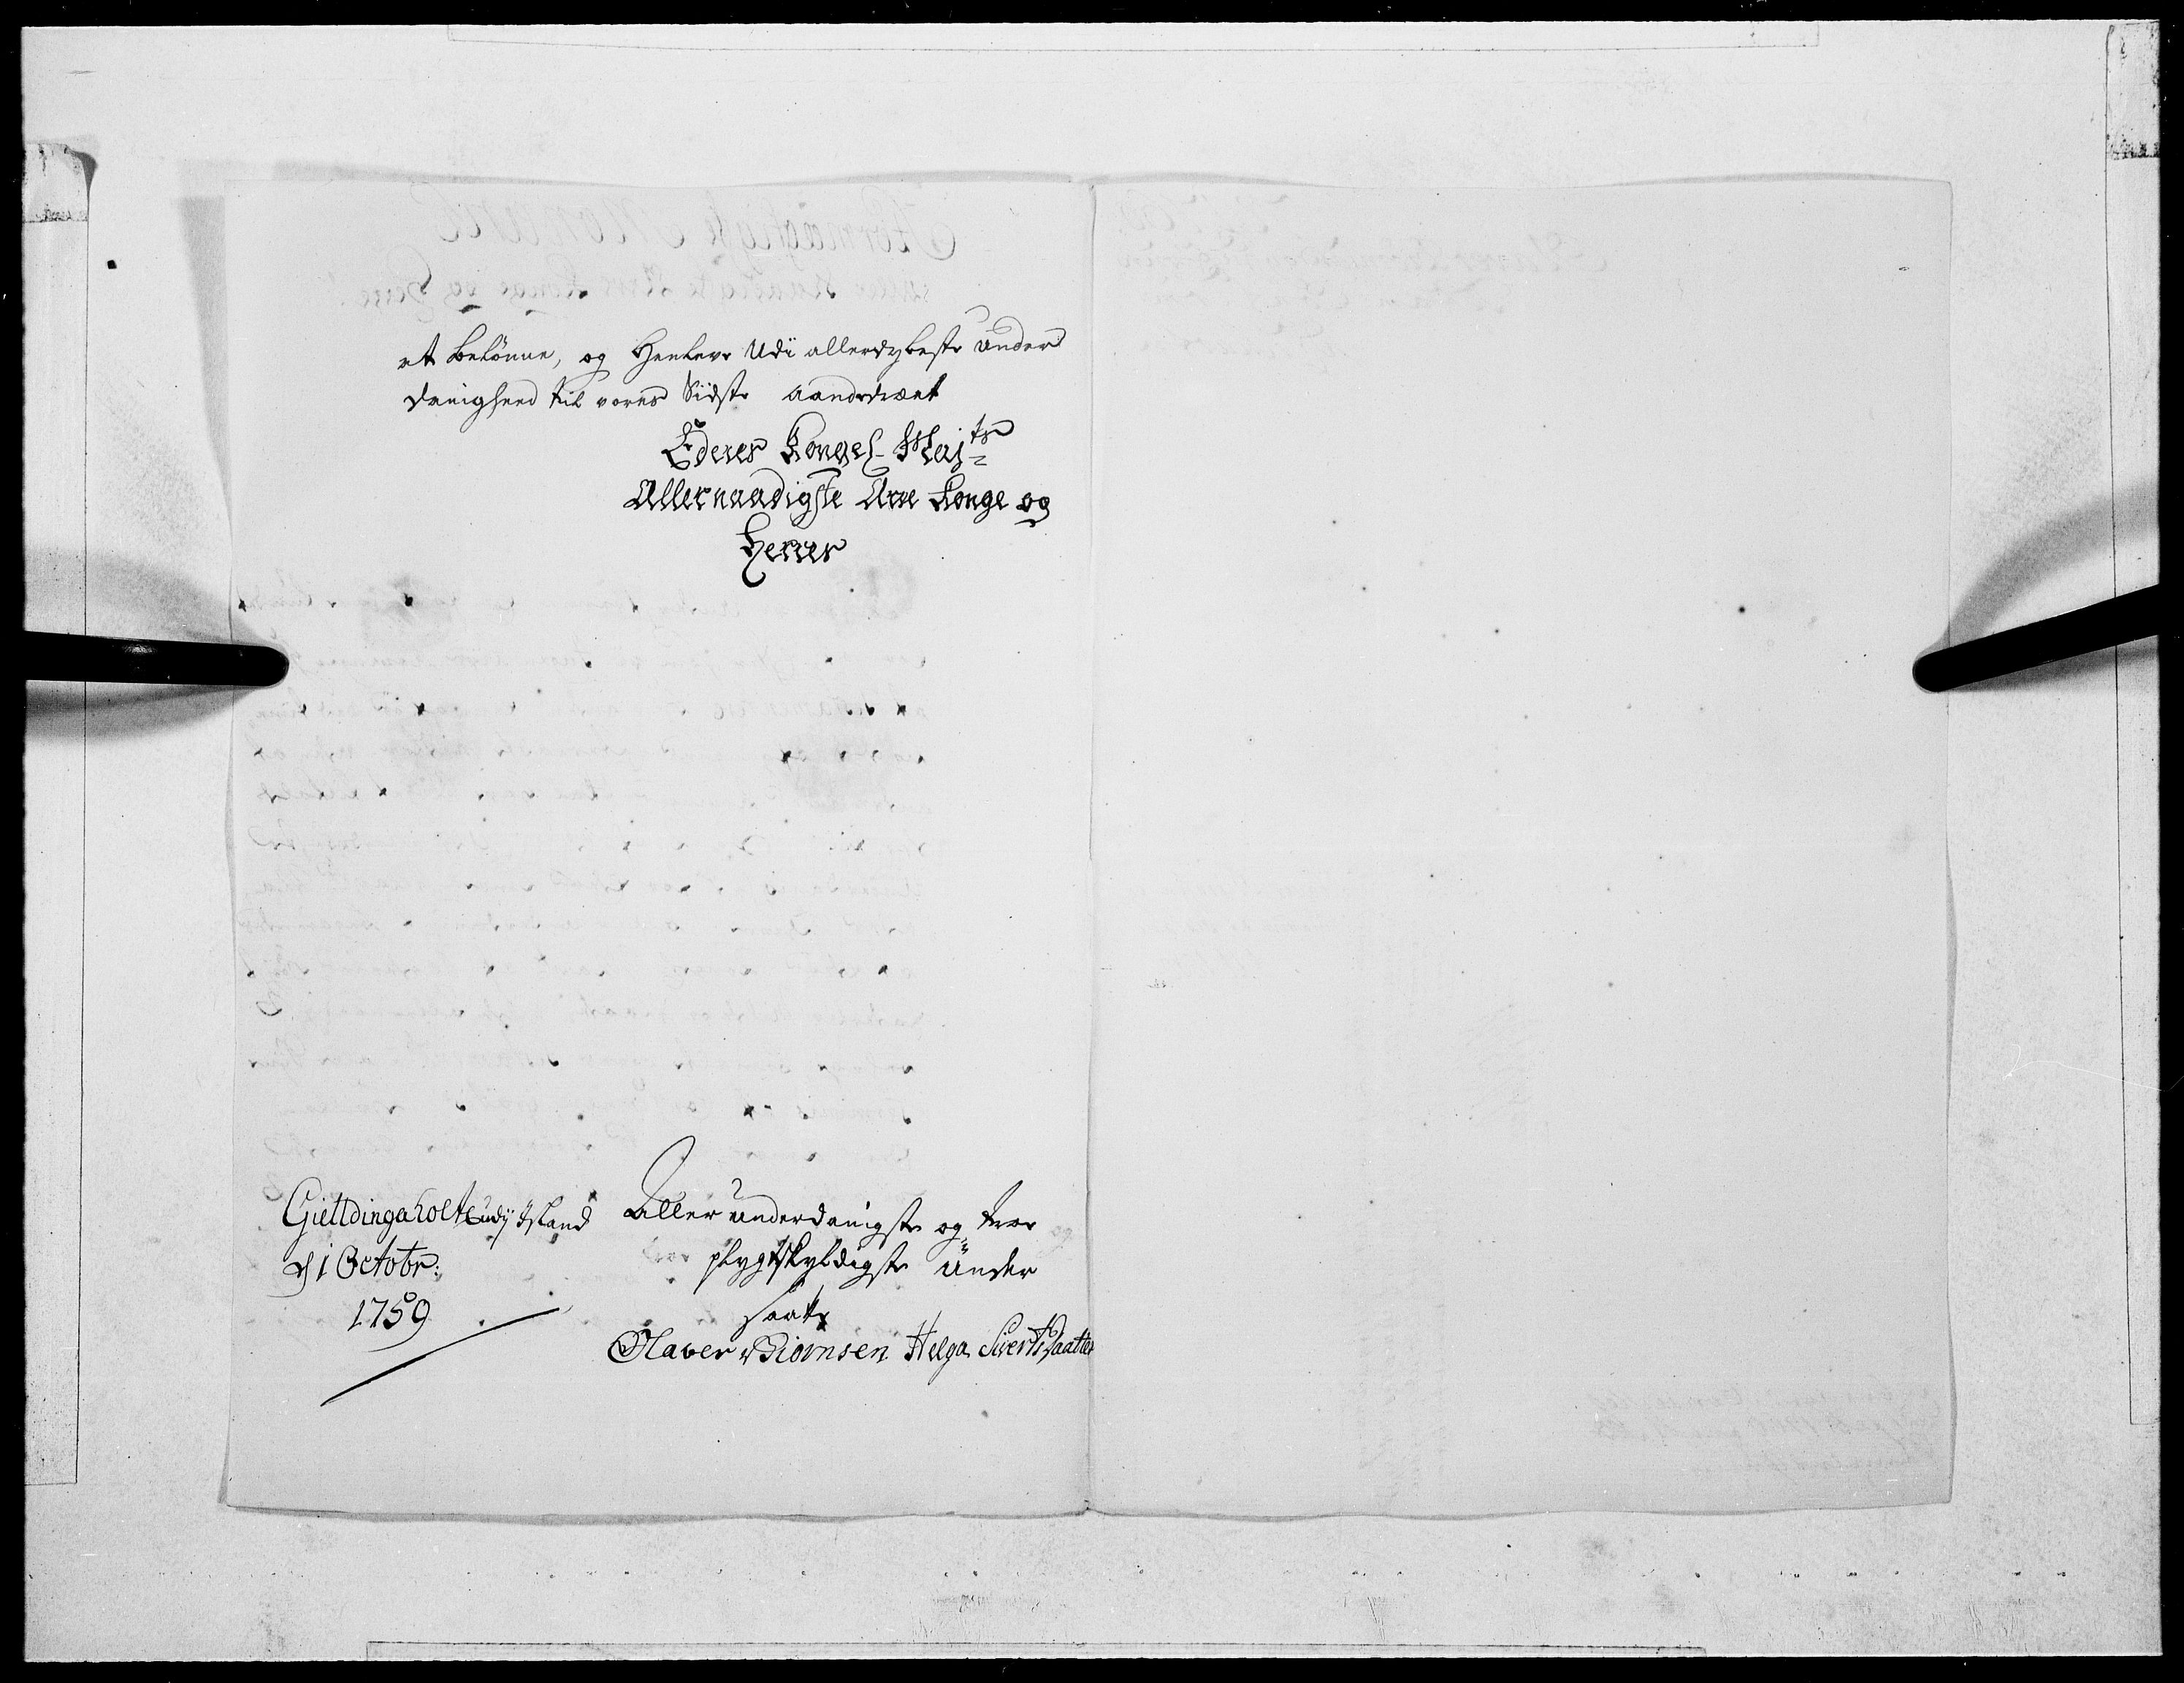 at belönne, og henleve Udi allerdybeste Under
danighed til vores Sidste aandedræt
Eders Kongel. Maj:ts
Allernaadigste Arve Konge og
Herres
Gielldingaholte udj Island
d 1 Octobr:
1759
Aller underdanigste og troe
plygtskyldigste Under
saatte
Olaver Biörnsen Helga Siverts Daatter